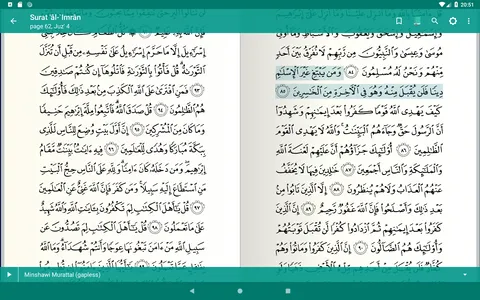 Surat 'āl-`Imrān
page 62, Juz' 4
20:51
وَإِسْمَٰعِيلَ وَإِسْحَٰقَ وَيَعْقُوبَ وَٱلْأَسْبَاطِ وَمَآ أُوتِىَ
مُوسَىٰ وَعِيسَىٰ وَٱلنَّبِيُّونَ مِن رَّبِّهِمْ لَا نُفَرِّقُ بَيْنَ أَحَدٍ
مِّنْهُمْ وَنَحْنُ لَهُۥ مُسْلِمُونَ ٨٤ وَمَن يَبْتَغِ غَيْرَ ٱلْإِسْلَٰمِ
دِينًا فَلَن يُقْبَلَ مِنْهُ وَهُوَ فِى ٱلْءَاخِرَةِ مِنَ ٱلْخَٰسِرِينَ ٨٥
كَيْفَ يَهْدِى ٱللَّهُ قَوْمًا كَفَرُوا۟ بَعْدَ إِيمَٰنِهِمْ وَشَهِدُوٓا۟
أَنَّ ٱلرَّسُولَ حَقٌّ وَجَآءَهُمُ ٱلْبَيِّنَٰتُ ۚ وَٱللَّهُ لَا يَهْدِى ٱلْقَوْمَ
ٱلظَّٰلِمِينَ ٨٦ أُو۟لَٰٓئِكَ جَزَآؤُهُمْ أَنَّ عَلَيْهِمْ لَعْنَةَ ٱللَّهِ
وَٱلْمَلَٰٓئِكَةِ وَٱلنَّاسِ أَجْمَعِينَ ٨٧ خَٰلِدِينَ فِيهَا لَا يُخَفَّفُ
عَنْهُمُ ٱلْعَذَابُ وَلَا هُمْ يُنظَرُونَ ٨٨ إِلَّا ٱلَّذِينَ تَابُوا۟ مِنۢ
بَعْدِ ذَٰلِكَ وَأَصْلَحُوا۟ فَإِنَّ ٱللَّهَ غَفُورٌ رَّحِيمٌ ٨٩ إِنَّ ٱلَّذِينَ
كَفَرُوا۟ بَعْدَ إِيمَٰنِهِمْ ثُمَّ ٱزْدَادُوا۟ كُفْرًا لَّن تُقْبَلَ تَوْبَتُهُمْ
وَأُو۟لَٰٓئِكَ هُمُ ٱلضَّآلُّونَ ٩٠ إِنَّ ٱلَّذِينَ كَفَرُوا۟ وَمَاتُوا۟ وَهُمْ
إِسْرَٰٓءِيلَ إِلَّا مَا حَرَّمَ إِسْرَٰٓءِيلُ عَلَىٰ نَفْسِهِۦ مِن قَبْلِ أَن تُنَزَّلَ
ٱلتَّوْرَىٰةُ ۗ قُلْ فَأْتُوا۟ بِٱلتَّوْرَىٰةِ فَٱتْلُوهَآ إِن كُنتُمْ صَٰدِقِينَ
٩٣ فَمَنِ ٱفْتَرَىٰ عَلَى ٱللَّهِ ٱلْكَذِبَ مِنۢ بَعْدِ ذَٰلِكَ فَأُو۟لَٰٓئِكَ
هُمُ ٱلظَّٰلِمُونَ ٩٤ قُلْ صَدَقَ ٱللَّهُ ۗ فَٱتَّبِعُوا۟ مِلَّةَ إِبْرَٰهِيمَ حَنِيفًا
وَمَا كَانَ مِنَ ٱلْمُشْرِكِينَ ٩٥ إِنَّ أَوَّلَ بَيْتٍ وُضِعَ لِلنَّاسِ لَلَّذِى
بِبَكَّةَ مُبَارَكًا وَهُدًى لِّلْعَٰلَمِينَ ٩٦ فِيهِ ءَايَٰتٌۢ بَيِّنَٰتٌ مَّقَامُ
إِبْرَٰهِيمَ ۖ وَمَن دَخَلَهُۥ كَانَ ءَامِنًا ۗ وَلِلَّهِ عَلَى ٱلنَّاسِ حِجُّ ٱلْبَيْتِ
مَنِ ٱسْتَطَاعَ إِلَيْهِ سَبِيلًا ۚ وَمَن كَفَرَ فَإِنَّ ٱللَّهَ غَنِىٌّ عَنِ ٱلْعَٰلَمِينَ
٩٧ قُلْ يَٰٓأَهْلَ ٱلْكِتَٰبِ لِمَ تَكْفُرُونَ بِـَٔايَٰتِ ٱللَّهِ وَٱللَّهُ شَهِيدٌ
عَلَىٰ مَا تَعْمَلُونَ ٩٨ قُلْ يَٰٓأَهْلَ ٱلْكِتَٰبِ لِمَ تَصُدُّونَ عَن
سَبِيلِ ٱللَّهِ مَنْ ءَامَنَ تَبْغُونَهَا عِوَجًا وَأَنتُمْ شُهَدَآءُ ۗ وَمَا ٱللَّهُ
Minshawi Murattal (gapless)